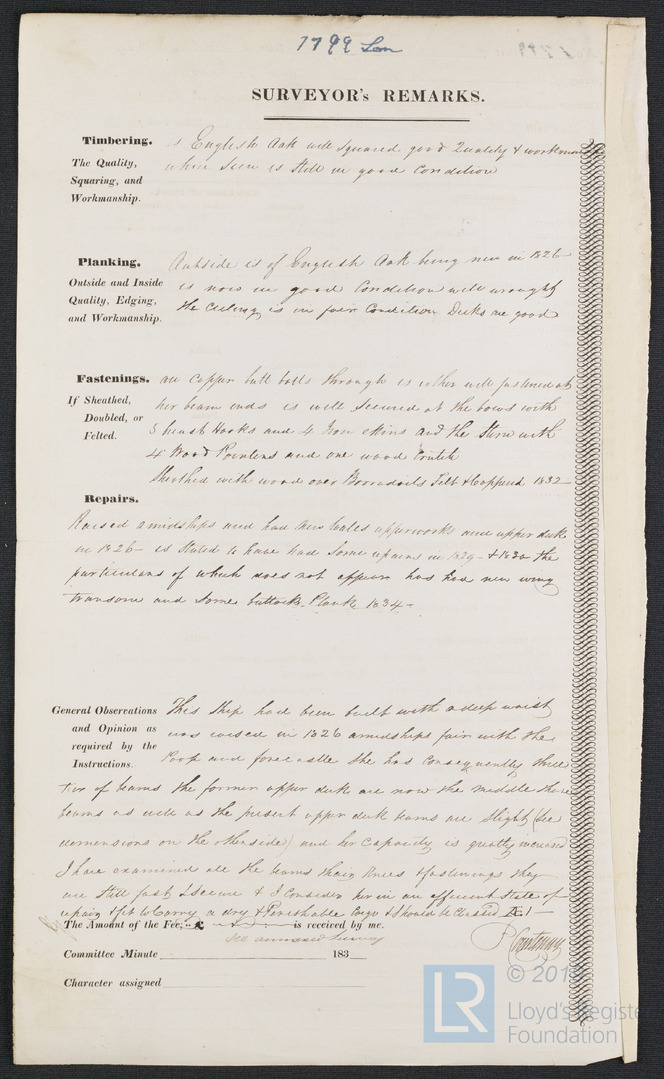 1799 Lon
SURVEYOR's REMARKS.
Timbering.
The Quality,
Squaring, and
Workmanship.
is English Oak well squared good Quality & workmanship
where seen is still in good Condition
Planking.
Outside and Inside
Quality, Edging,
and Workmanship.
Outside is of English Oak being new in 1826
is now in good Condition well wrought
the Ceiling is in fair Condition Decks are good
Fastenings.
If Sheathed,
Doubled, or
Felted.
all Copper butt bolts through is other well fastened at
her beam ends is well secured at the bows with
5 breast Hooks and 4 Iron and the Stern with
4 Wood Pointers and one wood Crutch
Sheathed with wood over Borrodails Felt & Coppered 1832
Repairs.
Raised amidships and had new Wales upperworks and upper deck
in 1826 - is Stated to have had some repairs in 1829 - & 1830 the
particulars of which does not appear has had new wing
transom and some buttock Plank 1834 -
General Observations
and Opinion as
required by the
Instructions.
This Ship had been built with a deep waist
was raised in 1826 amidships fair with the
Poop and forecastle She has consequently three
tier of beams the former upper deck are now the middle these
beams as well as the present upper deck beams are slight (See
dimensions on the otherside) and her Capacity is greatly increased
I have examined all the beams their knees & fastenings they
are still fast & secure & I Consider her in an efficient state of
repair & fit to Carry a dry & Perishable Cargo & Should be Classed Æ 1 -
The Amount of the Fee, £ is received by me.
see annexed Survey
P Courtenay
Committee Minute 183
Character assigned
LR
© 201
Lloyd's Registe
Foundation